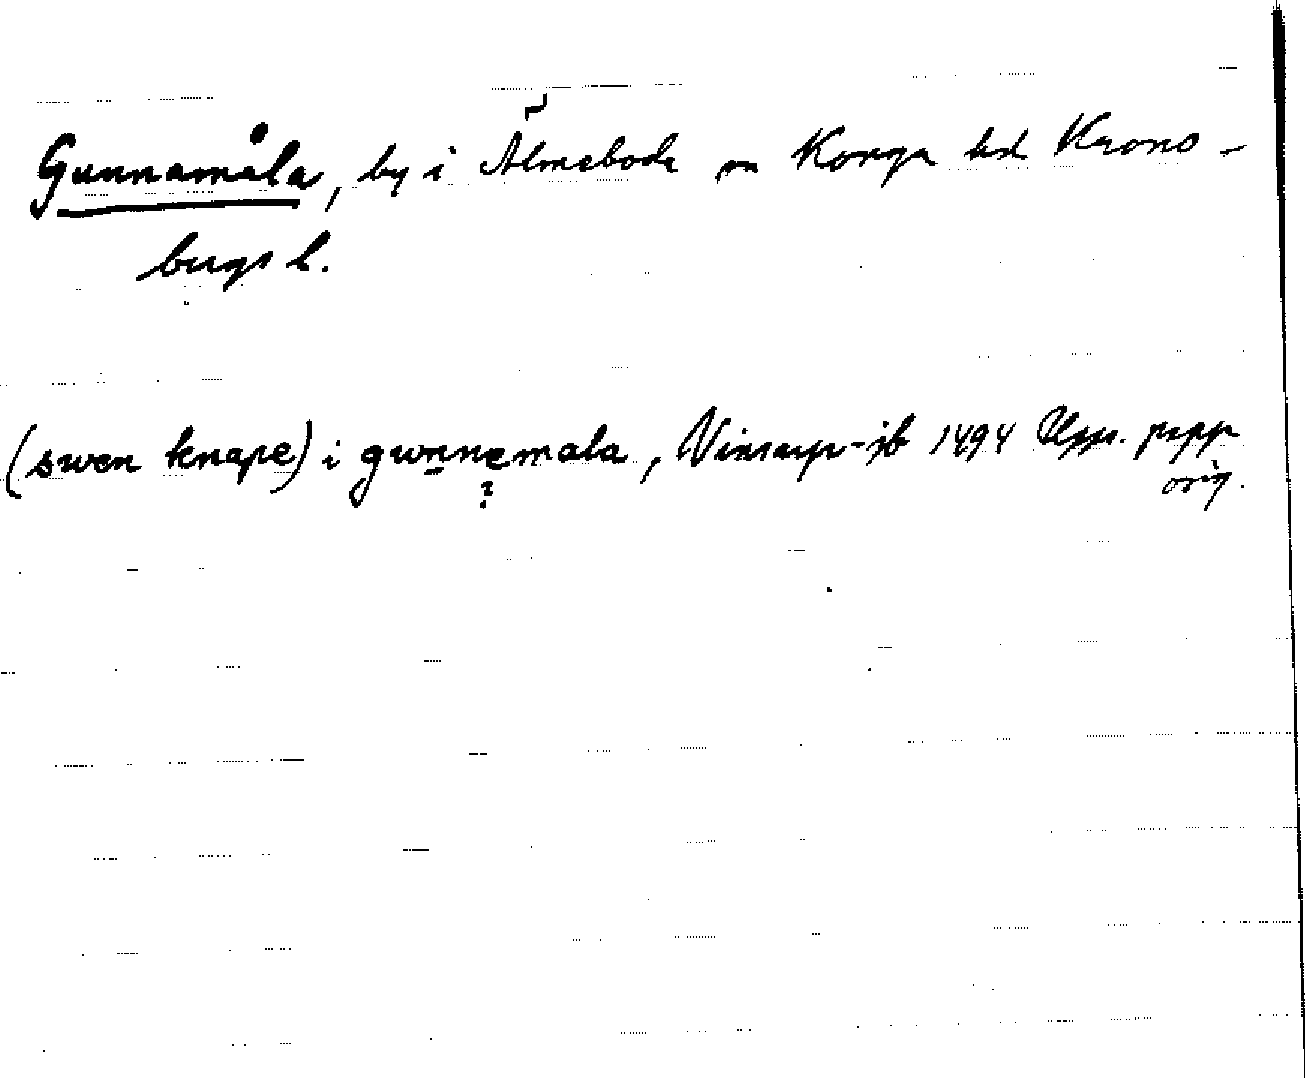 Gunnamåla, by i Älmeboda sn Konga hd Krono-
bergs l.
(swen knape) i gwnnemala, Vinsarps-jb 1494 Upps. papp
?
orig.